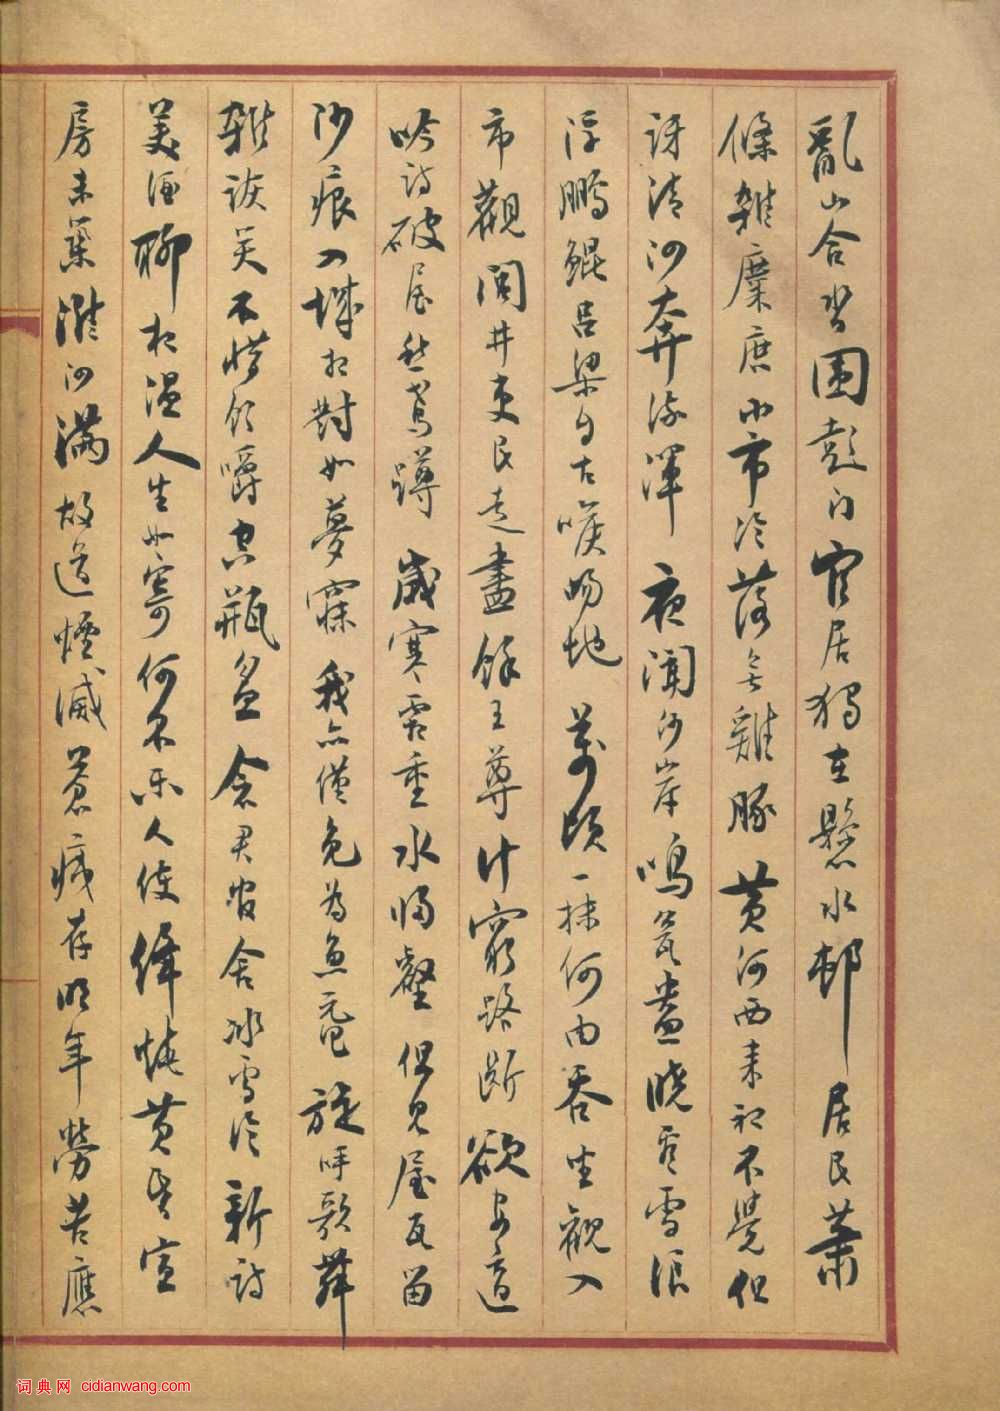 亂山合沓圍彭門官居獨在懸水邨居民蕭
條雜麋鹿小市冷落無雞豚黃河西來初不覺但
訝清泗奔流渾夜聞沙岸鳴瓮盎曉看雪浪
浮鵬鯤呂梁自古喉吻地萬頃一抹何由吞坐觀入
市觀閭井吏民走盡餘王尊計窮路斷欲安適
吟詩破屋愁鳶蹲歲寒霜重水歸壑但見屋瓦留
沙痕入城相對如夢寐我亦僅免為魚黿旋呼歌舞
雜詼笑不惜飲嚼空瓶盆念君官舍冰雪冷新詩
美酒聊相溫人生如寄何不樂人使絳燒黃昏宣
房未築淮泗滿故道煙滅蒼痍存明年勞苦應
词典网 cidianwang.com